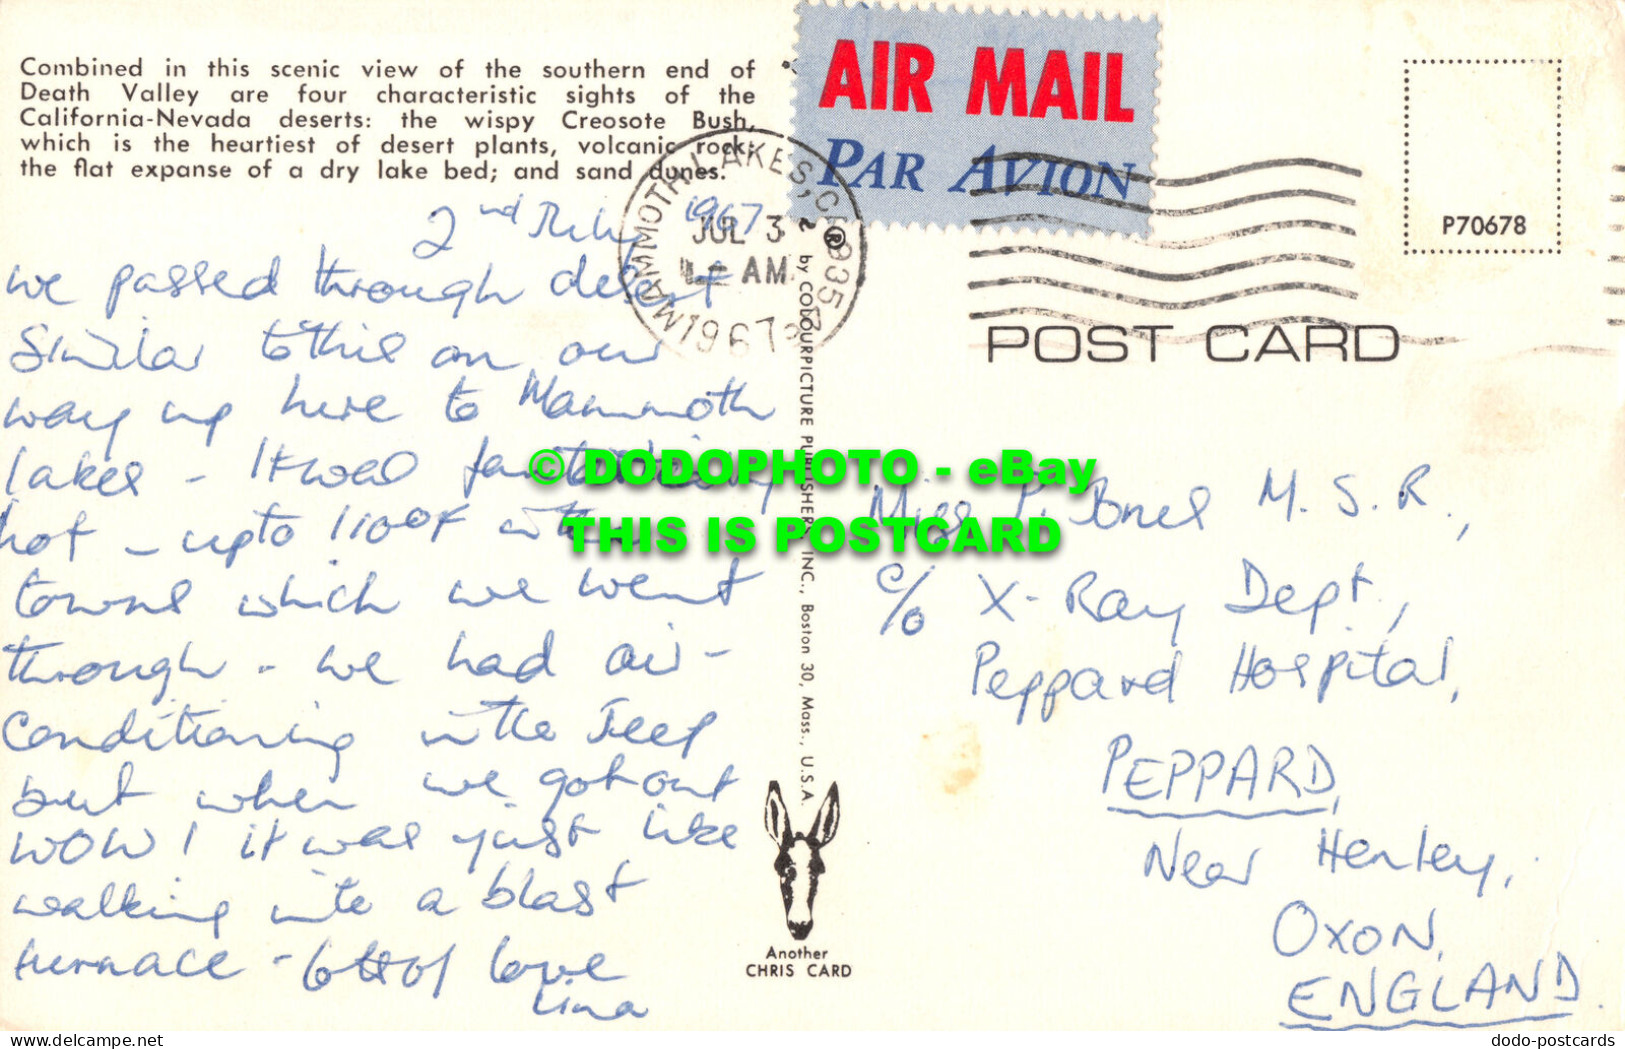 Combined in this scenic view of the southern end of
Death Valley are four characteristic sights of the
California-Nevada deserts: the wispy Creosote Bush,
which is the heartiest of desert plants, volcanic rock;
the flat expanse of a dry lake bed; and sand dunes.
AIR MAIL
PAR AVION
P70678
MAMMOTH LAKES, CA 935
JUL 3
AM
1967
POST CARD
2nd July 1967
we passed through desert
similar to this on our
way up here to Mammoth
lakes - It was
hot - up to 110°F in the
towns which we went
through - we had air-
conditioning in the Jeep
but when we got out
WOW! it was just like
walking into a blast
furnace - lots of love
Lina
by COLOURPICTURE PUBLISHERS, INC., Boston 30, Mass., U.S.A.
Another
CHRIS CARD
Miss P. Jones M.S.R.,
c/o X-Ray Dept.,
Peppard Hospital,
PEPPARD,
Near Henley,
OXON,
ENGLAND.
© DODOPHOTO - eBay
THIS IS POSTCARD
www.delcampe.net
dodo-postcards